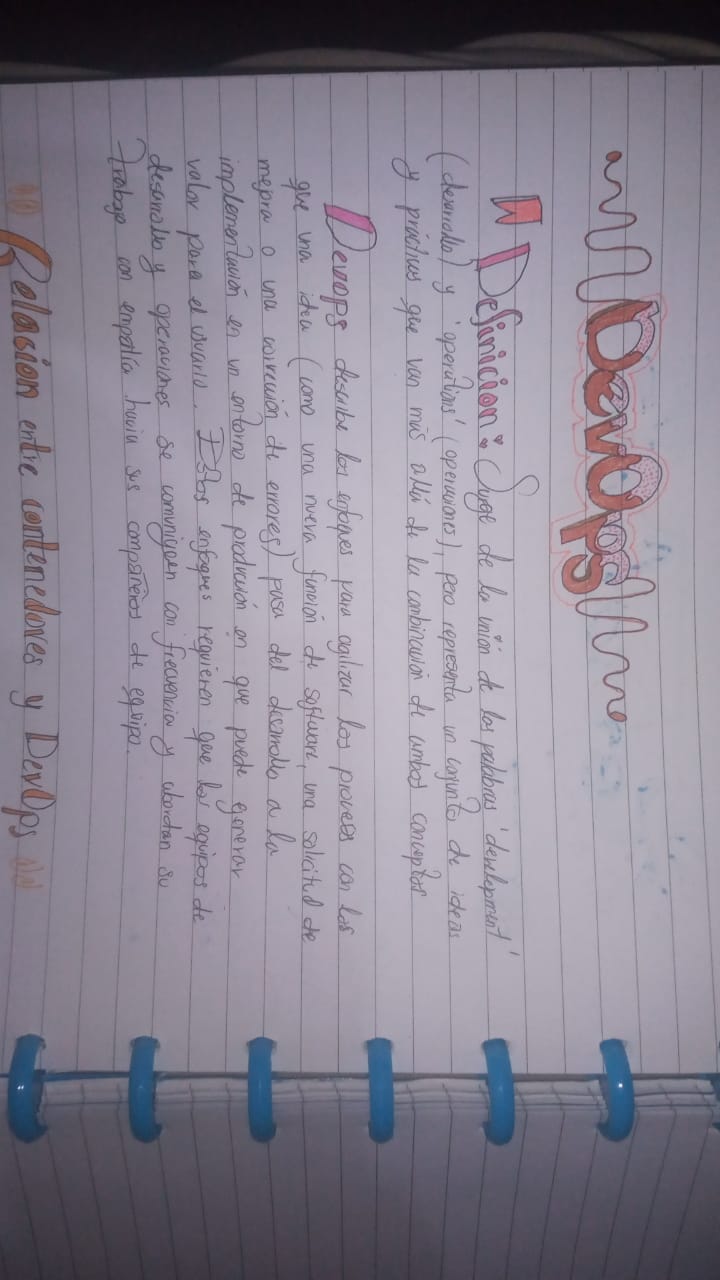 DevOps
Definicion: Surge de la unión de las palabras 'development'
(desarrollo) y 'operations' (operaciones), pero representa un conjunto de ideas
y prácticas que van más allá de la combinación de ambos conceptos
Devops describe los enfoques para agilizar los procesos con los
que una idea (como una nueva función de software, una solicitud de
mejora o una corrección de errores) pasa del desarrollo a la
implementación en un entorno de producción en que puede generar
valor para el usuario. Estos enfoques requieren que los equipos de
desarrollo y operaciones se comuniquen con frecuencia y abordan su
trabajo con empatía hacia sus compañeros de equipo.
Relacion entre contenedores y DevOps